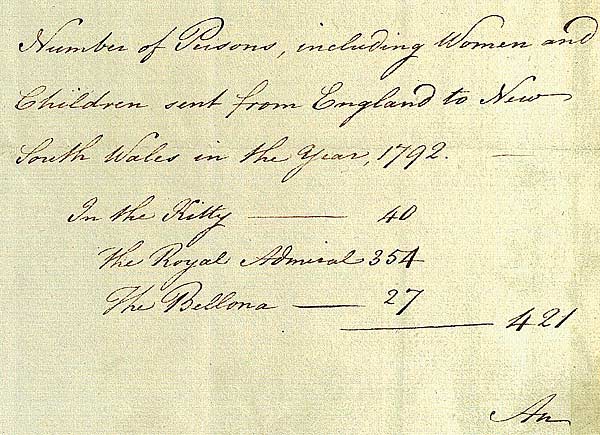 Number of Persons, including Women and
Children sent from England to New
South Wales in the Year, 1792. —
In the Kitty — 40
The Royal Admiral 354
The Bellona — 27
— 421
An